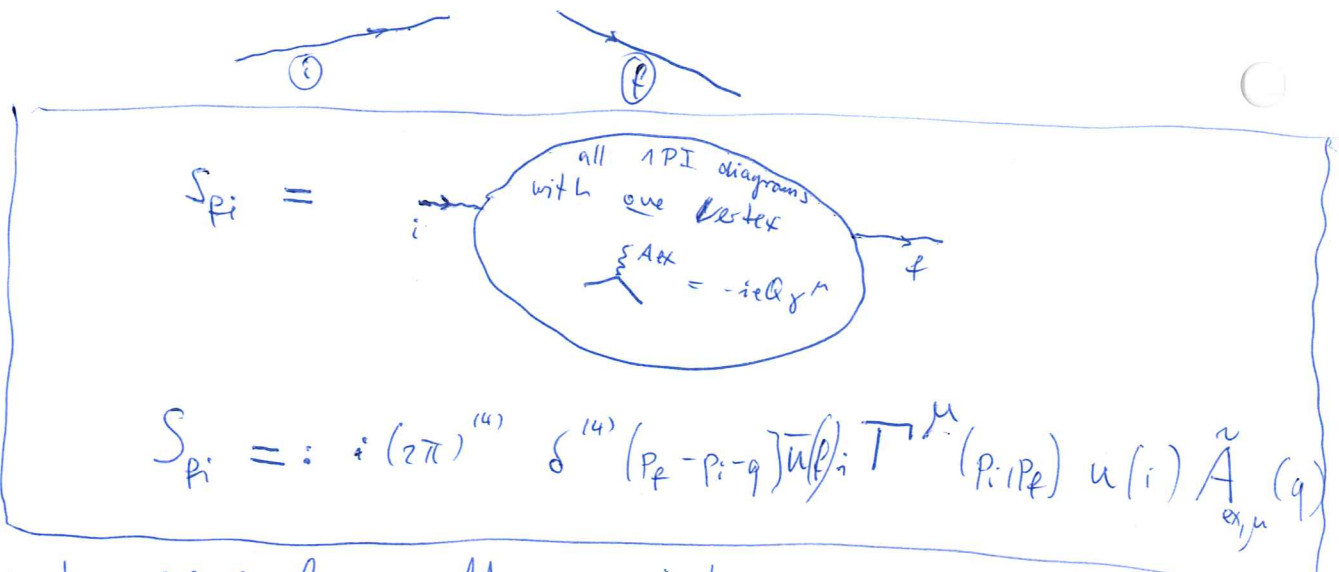 i f
S_{fi} = i all 1PI diagrams
with one vertex
A_{ex} = -ieQγ^μ
f
S_{fi} =: i (2π)^{(4)} δ^{(4)} (p_f - p_i - q) ū(f) i Γ^μ (p_i, p_f) u(i) Ã_{ex,μ} (q)